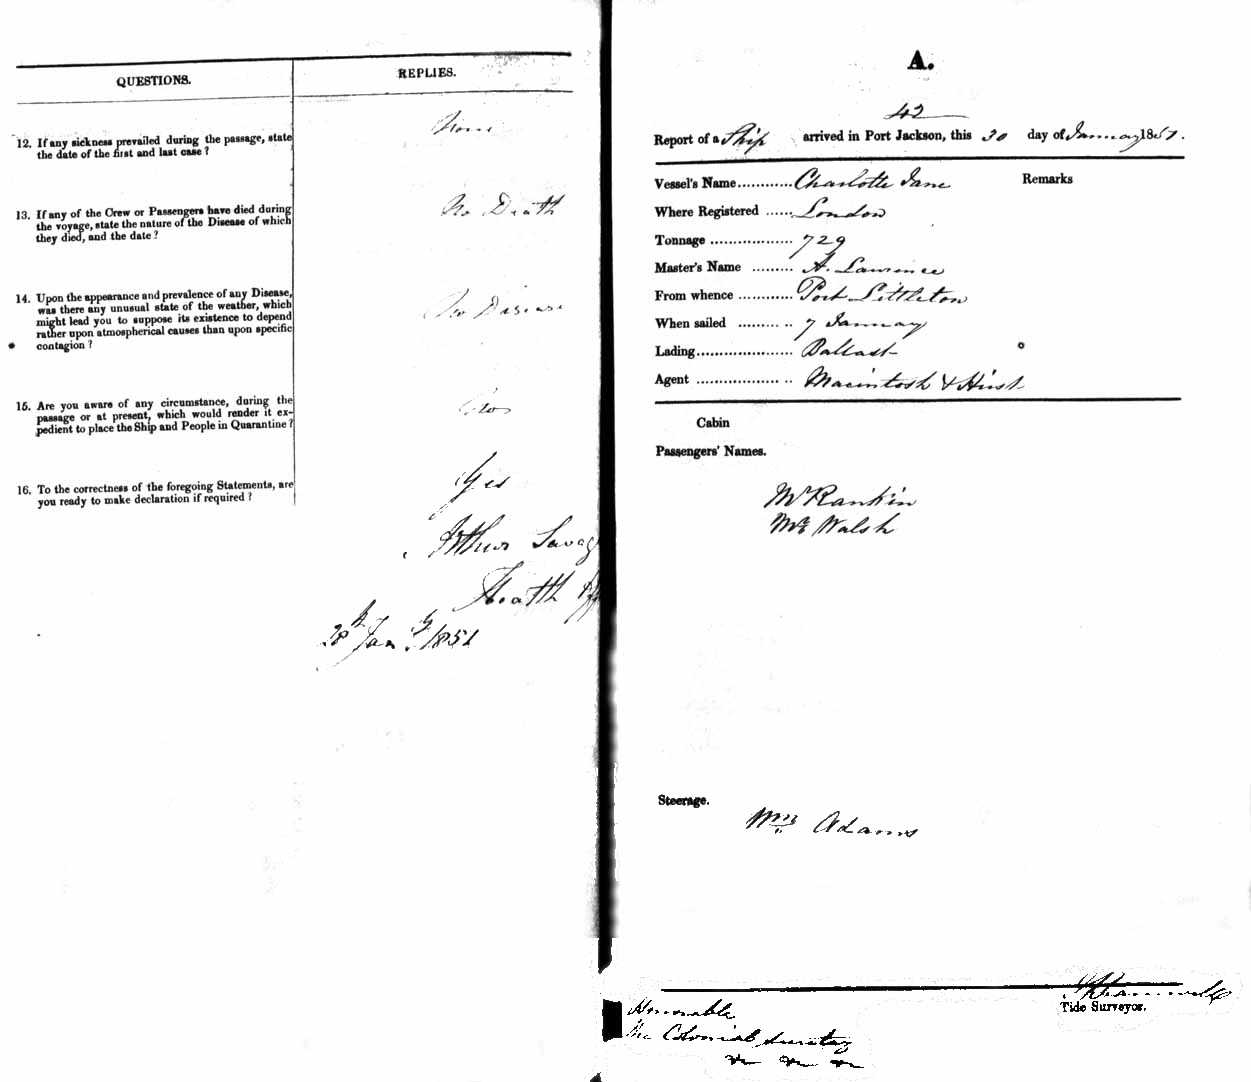 QUESTIONS.
REPLIES.
12. If any sickness prevailed during the passage, state
the date of the first and last case?
None
13. If any of the Crew or Passengers have died during
the voyage, state the nature of the Disease of which
they died, and the date?
No Death
14. Upon the appearance and prevalence of any Disease,
was there any unusual state of the weather, which
might lead you to suppose its existence to depend
rather upon atmospherical causes than upon specific
contagion?
No Disease
15. Are you aware of any circumstance, during the
passage or at present, which would render it ex-
pedient to place the Ship and People in Quarantine?
No
16. To the correctness of the foregoing Statements, are
you ready to make declaration if required?
Yes
Arthur Savag
Health Off
28th Jany. 1851
A.
42
Report of a Ship arrived in Port Jackson, this 30 day of January 1851.
Vessel's Name............Charlotte Jane
Remarks
Where Registered ......London
Tonnage ..................729
Master's Name .........A. Lawrence
From whence ............Port Littleton
When sailed ......... ..7 January
Lading.....................Ballast
Agent .................. ..Macintosh & Hirst
Cabin
Passengers' Names.
Mr Rankin
Walsh
Steerage.
Wm Adams
Tide Surveyor.
Honorable
The Colonial Secretary